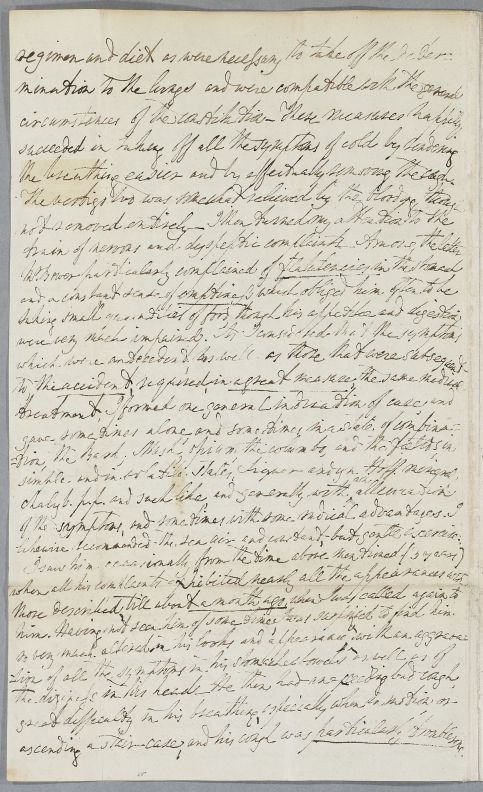 regimen and diet as were necessary to take off the deter-
mination to the lungs and were compatible with the general
circumstances of the constitution - These measures happily
succeeded in taking off all the symptoms of cold by rendering
the breathing easier and by effectually removing the
The vertigo too was somewhat relieved by the tho
not removed entirely - I then turned my attention to the
train of nervous and dyspeptic complaints. Among the latter
Mr particularly complained of flatulencies in the stomach
and a constant sense of emptiness which obliged him often to be
taking small quantities of food though his appetite and digestion
were very much impaired. As I considered that the symptoms
which were antecedent as well as those that were subsequent
to the accident required in a great measure the same medical
treatment I formed one general indication of cure and
gave sometimes alone and sometimes in a state of combina-
tion the Bark, opium the columbo and the
simple and in a state Hoff.
chalyb. ppt and such like and generally with alleviation
of the symptoms, and sometimes with some radical advantages. I
likewise recommended the sea air and constant but gentle exercise.
I saw him occasionally from the time above mentioned (3 years)
when all his complaints exhibited nearly all the appearances
those described till about a month ago, when I was called again to
him. Having not seen him of some time I was surprised to find him
so very much altered in his looks and appearance, with an aggrava-
tion of all the symptoms in his stomach & bowels as well as of
the dizziness in his head. He then had an exceeding bad cough
great difficulty in his breathing especially when in motion or
ascending a stair-case, and his cough was particularly troublesome